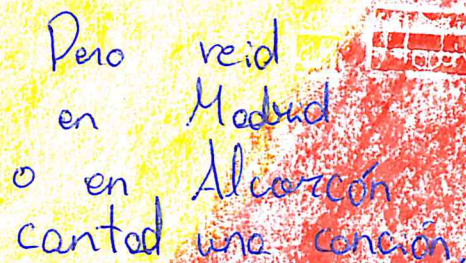 Pero reid
en Madrid
o en Alcorcón
cantad una canción,